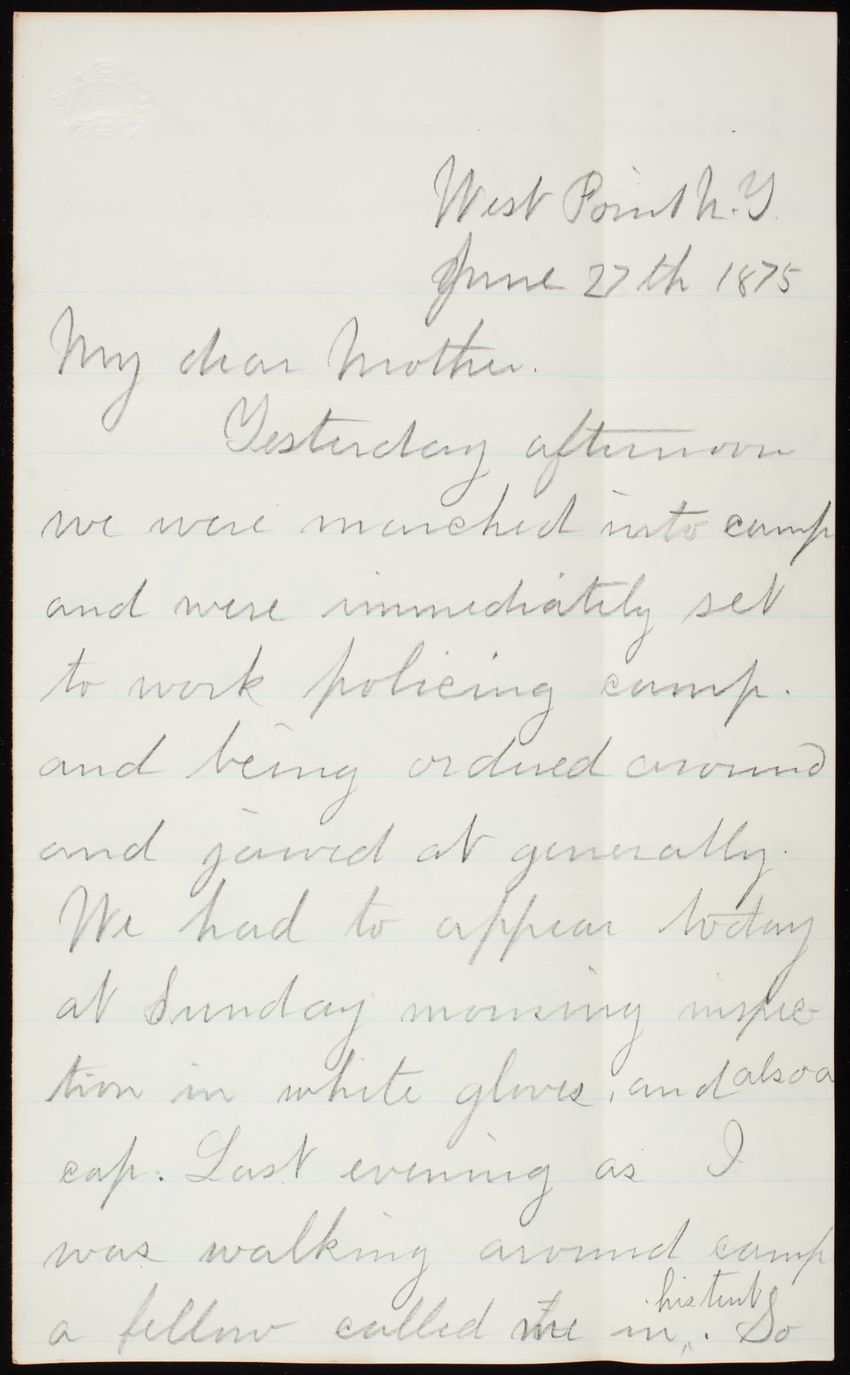 West Point N.Y.
June 27th 1875
My dear Mother.
Yesterday afternoon
we were marched into camp
and were immediately set
to work policing camp.
and being ordered around
and jawed at generally.
We had to appear today
at Sunday morning inspec-
tion in white gloves, and also a
cap. Last evening as I
was walking around camp
a fellow called me in his tent. So